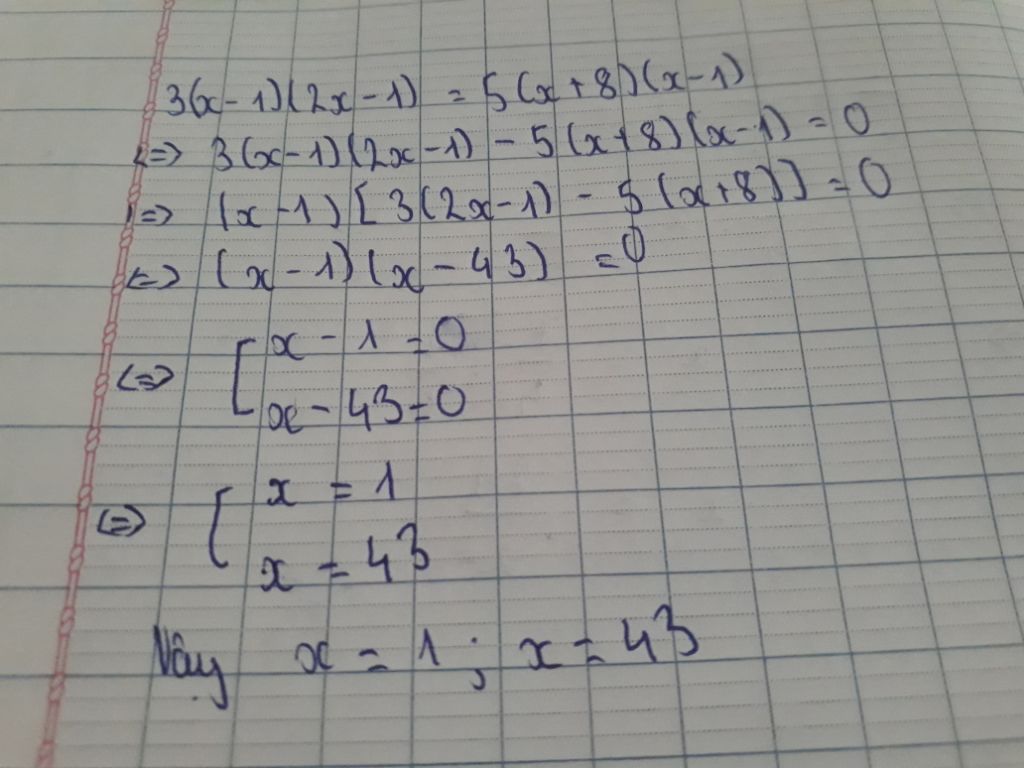 3(x-1)(2x-1) = 5(x+8)(x-1)
<=> 3(x-1)(2x-1) - 5(x+8)(x-1) = 0
<=> (x-1)[3(2x-1) - 5(x+8)] = 0
<=> (x-1)(x-43) = 0
<=> [ x-1=0
x-43=0
<=> [ x = 1
x = 43
Vậy x = 1 ; x = 43